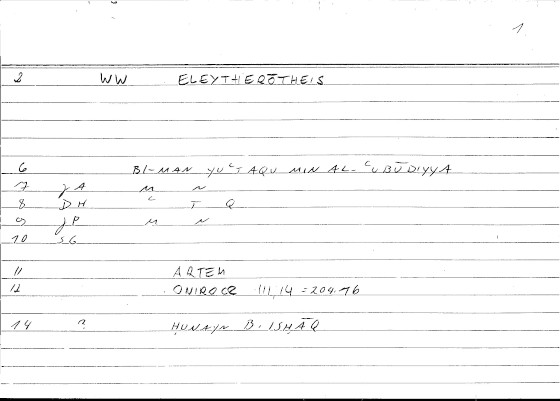 1
2 WW ELEYTHERŌTHEIS
6 BI-MAN YUʿTAQU MIN AL-ʿUBŪDIYYA
7 JA M N
8 DH ʿ T Q
9 JP M N
10 SG
11 ARTEM
12 ONIROCR III,14 = 204.16
14 ? ḤUNAYN B. ISḤĀQ